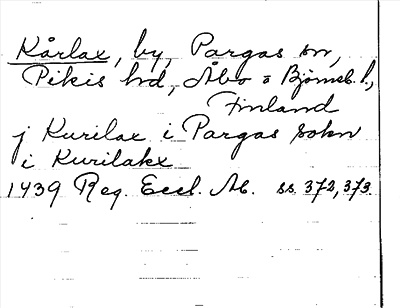 Kårlax, by, Pargas sn,
Pikis hd, Åbo o Björneb. l.,
Finland
j Kurilax i Pargas sokn
i Kurilakx
1439 Reg. Eccl. Ab. ss. 372, 373.